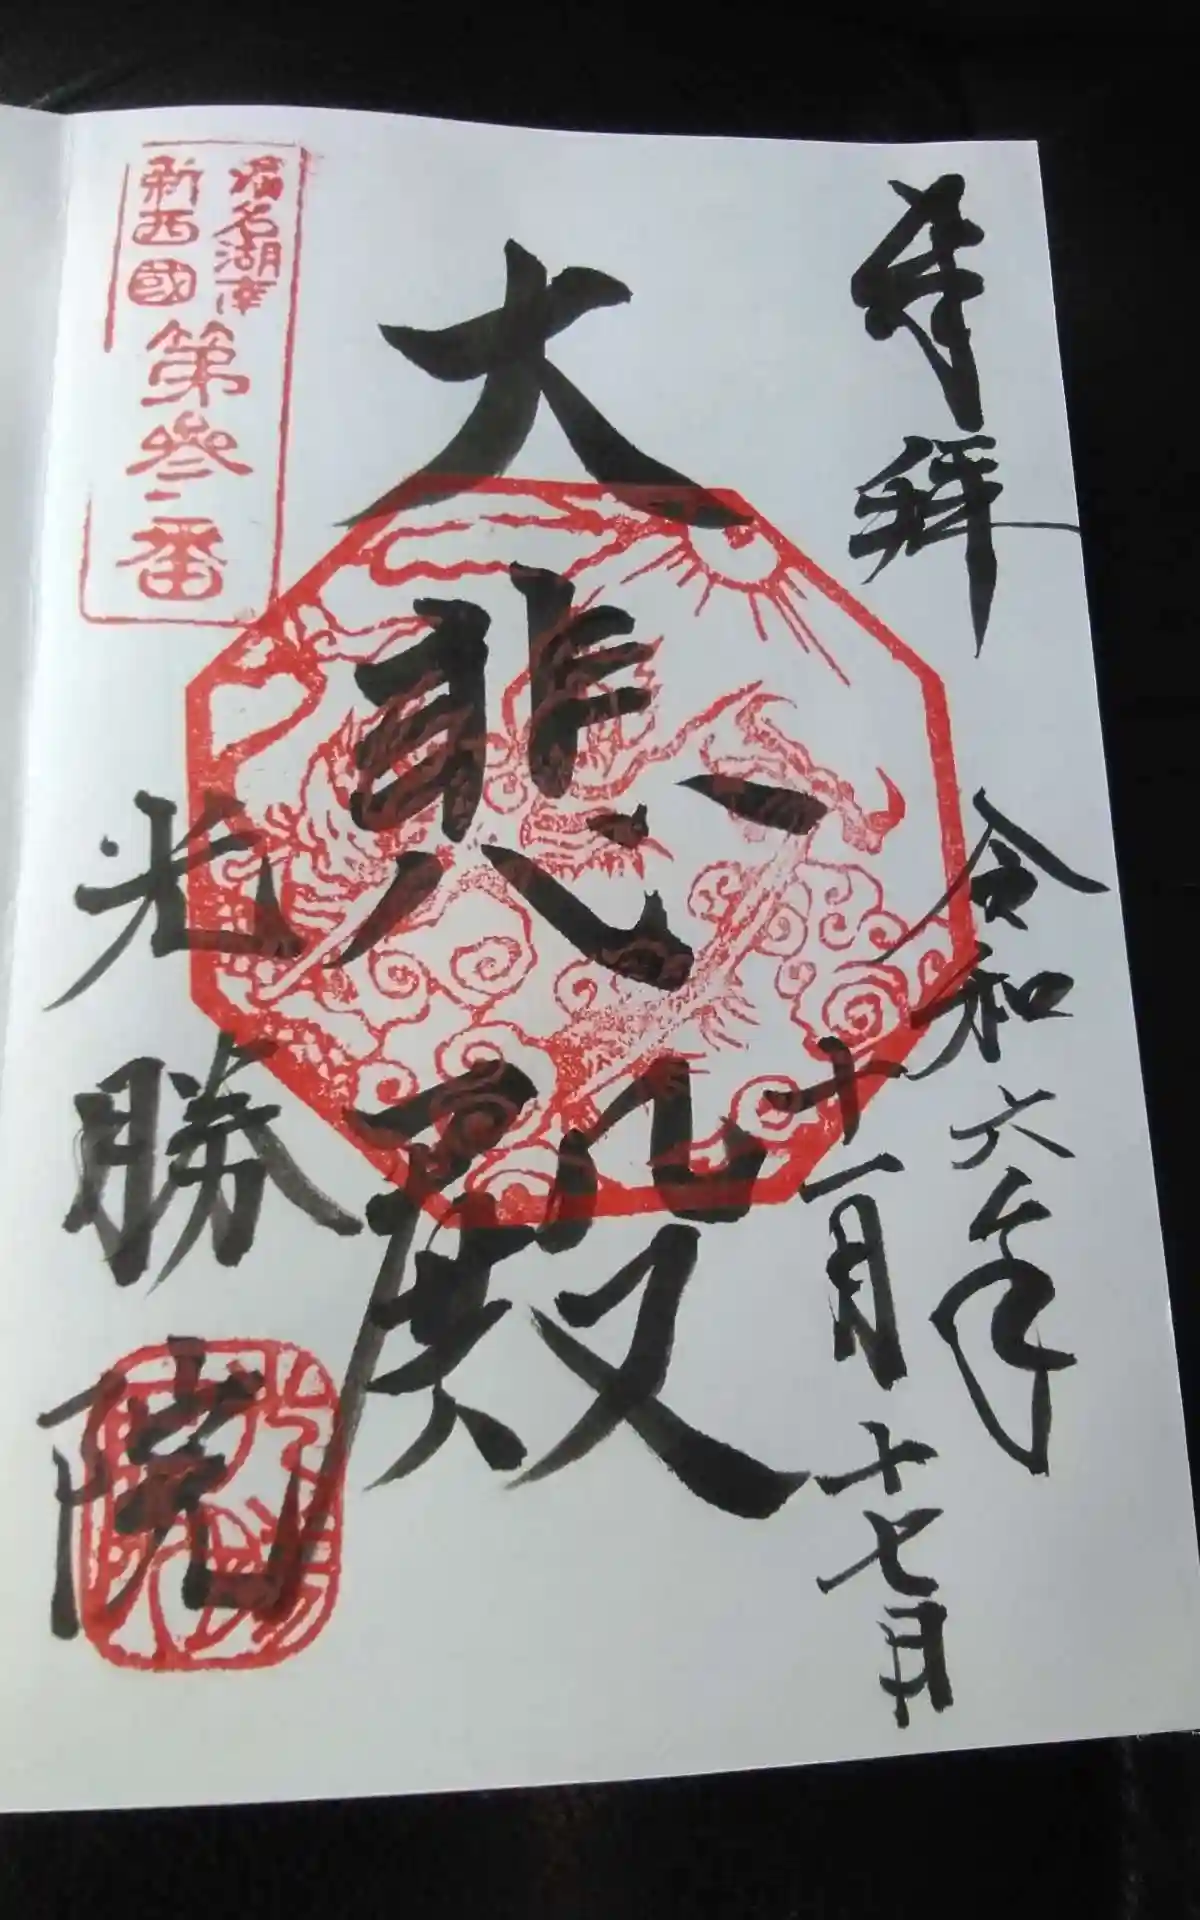 奉拝
令和六年
十一月十七日
大悲殿
濱名湖南
新西國
第参番
光勝院